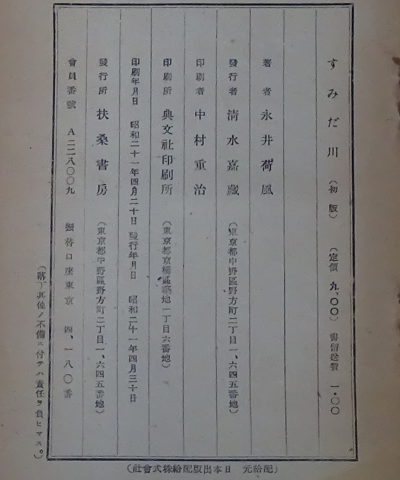 すみだ川 (初版) (定價 九.〇〇) 書留送費 一.〇〇
著者 永井荷風
發行者 清水嘉蔵 (東京都中野區野方町二丁目一、六四五番地)
印刷者 中村重治
印刷所 典文社印刷所 (東京都京橋區築地一丁目六番地)
印刷年月日 昭和二十一年四月二十日 發行年月日 昭和二十一年四月三十日
發行所 扶桑書房 (東京都中野區野方町二丁目一、六四五番地)
會員番號 A二二八〇〇九 振替口座東京 四、一八〇番
(落丁其他ノ不備ニ付テハ責任ヲ負ヒマス。)
(配給元 日本出版配給株式會社)